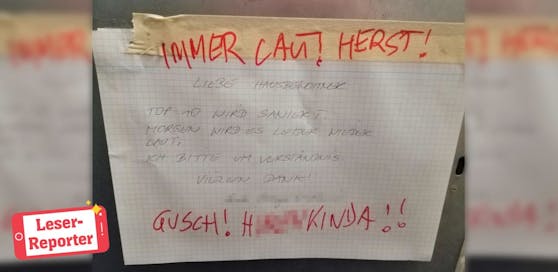 IMMER LAUT! HERST!
LIEBE HAUSBEWOHNER
TOP 10 WIRD SANIERT
MORGEN WIRD ES LEIDER WIEDER
LAUT.
ICH BITTE UM VERSTÄNDNIS
VIELEN DANK!
GUSCH! H KINDA!!
Leser-
Reporter